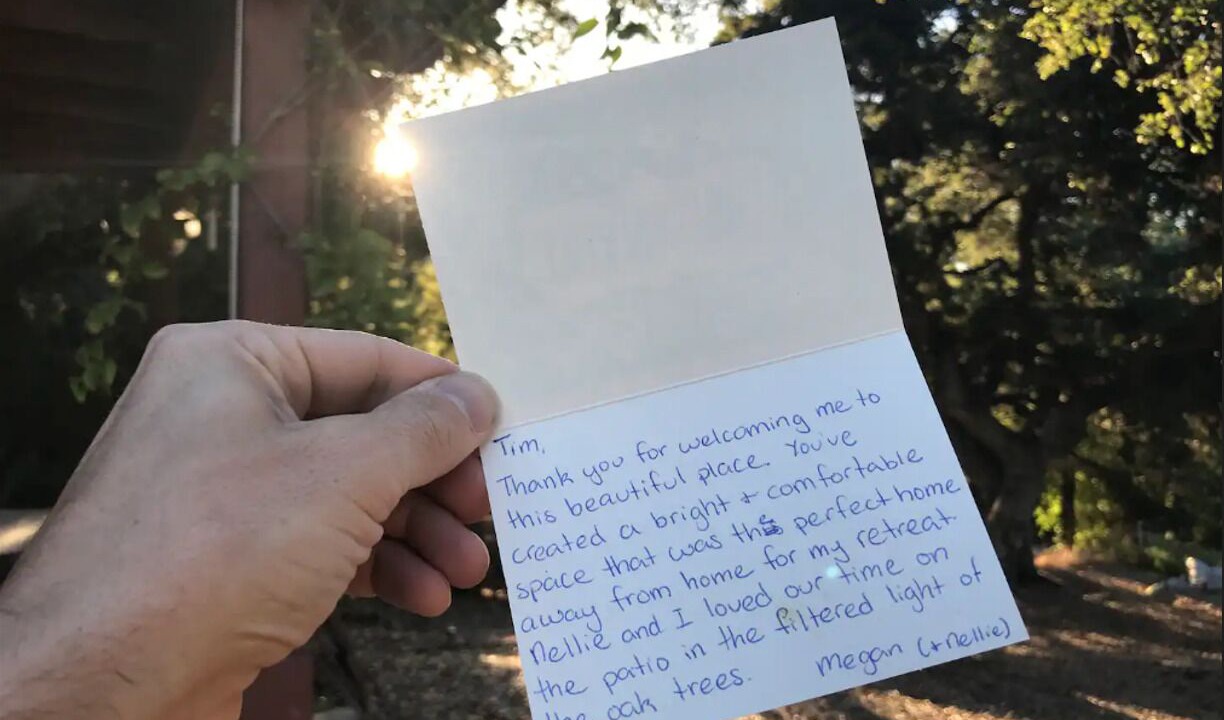 Tim,
Thank you for welcoming me to
this beautiful place. You've
created a bright + comfortable
space that was the perfect home
away from home for my retreat.
Nellie and I loved our time on
the patio in the filtered light of
the oak trees.
Megan (+ Nellie)